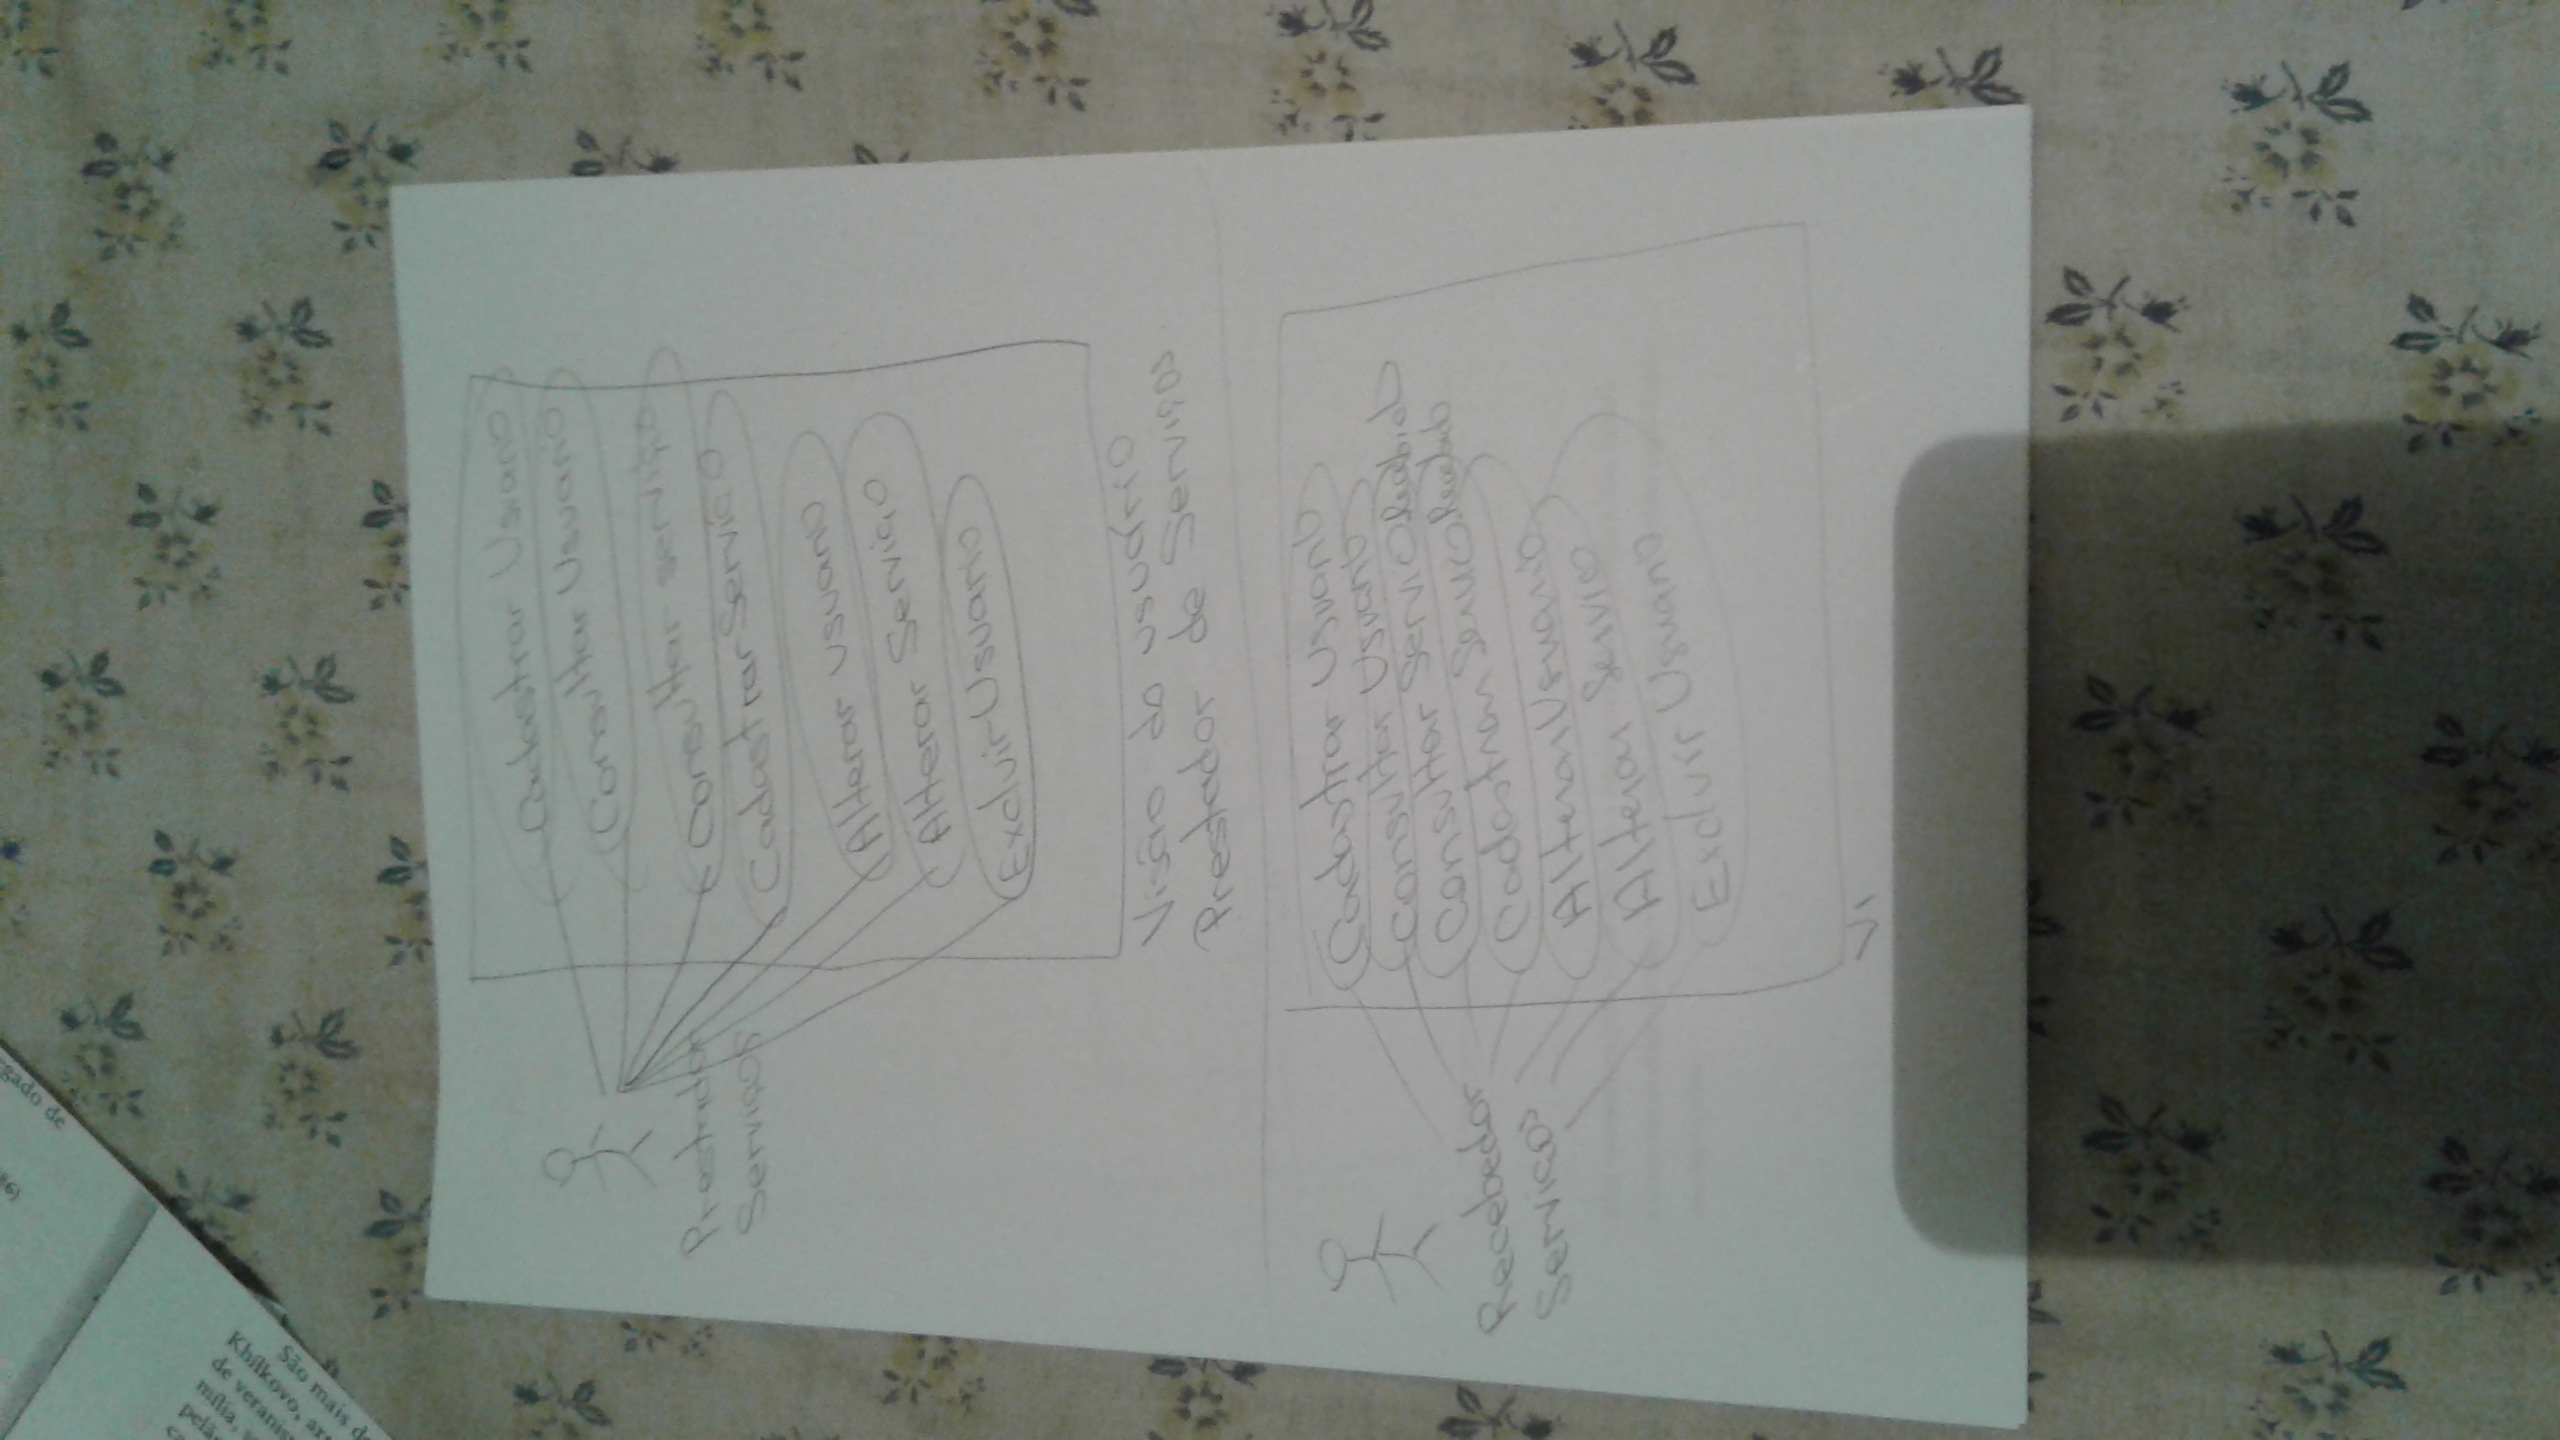 gado de
São mais d
Khilkovo, ar
de veranin
mília,
pelã
Prestador
Serviços
Cadastrar Usuario
Consultar Usuario
Consultar serviço
Cadastrar Serviço
Alterar usuario
Alterar Serviço
Excluir Usuario
Visão do usuário
Prestador de Serviços
Recebedor
Serviços
Cadastrar Usuario
Consultar Usuario
Consultar Serviço Recebido
Cadastrar Serviço Recebido
Alterar Usuario
Alterar Serviço
Excluir Usuario
Vi